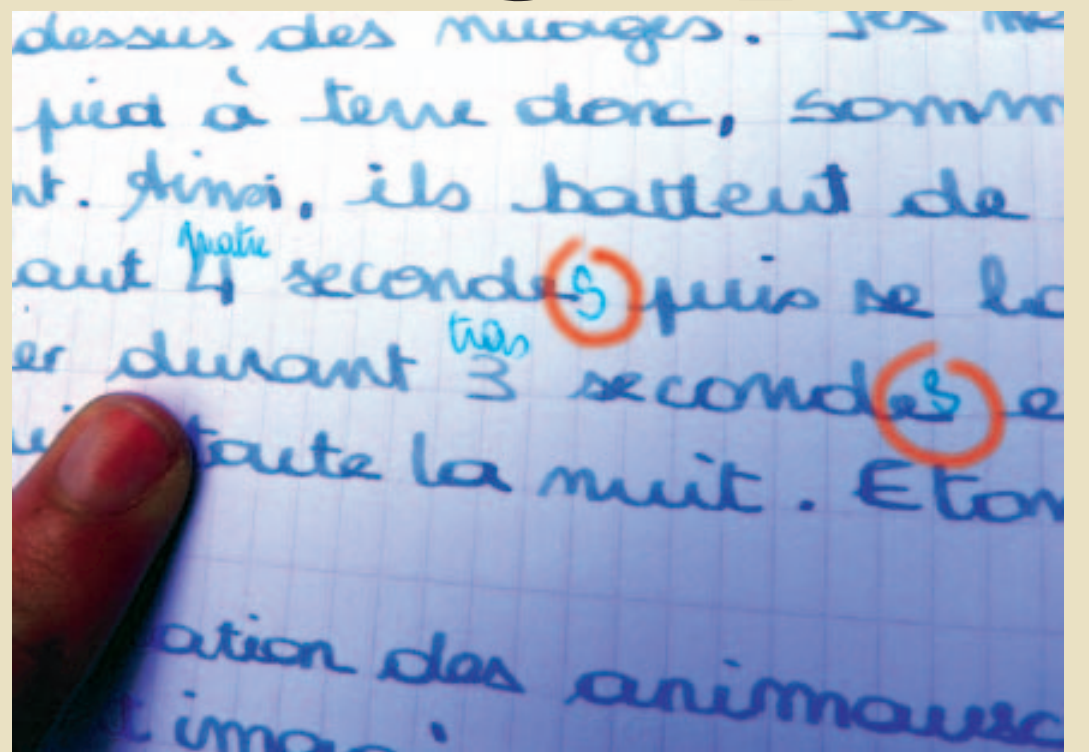 dessus des nuages. Ses me
pied à terre donc, somm
nt. Ainsi, ils battent de
quatre
aut 4 secondes puis se la
trois
er durant 3 secondes e
toute la nuit. Eton
ation des animaux
t imagi